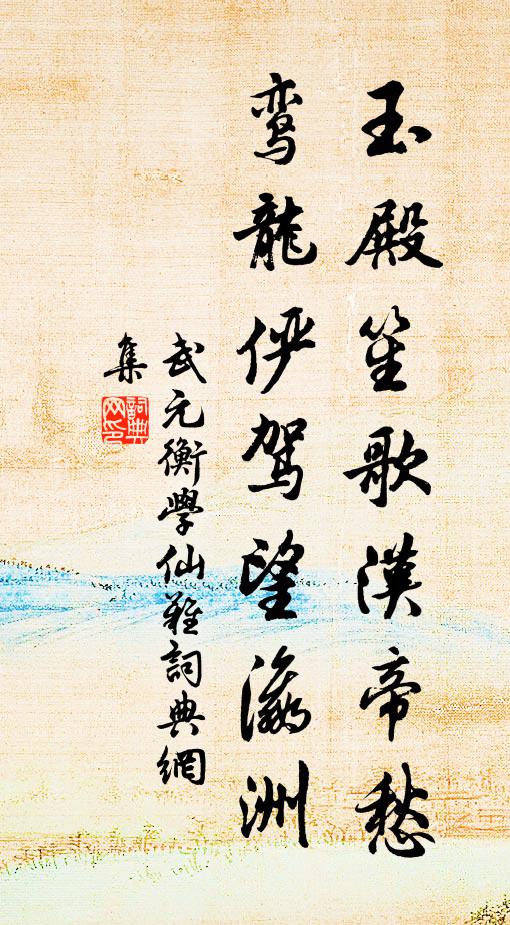 玉殿笙歌漢帝愁
鸾龍俨駕望瀛洲
武元衡學仙難詞典網
集
詞典
网印